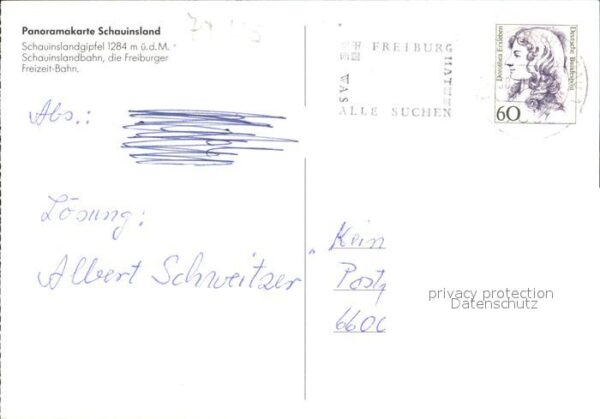 Panoramakarte Schauinsland
Schauinslandgipfel 1284 m ü.d.M.
Schauinslandbahn, die Freiburger
Freizeit-Bahn.
FREIBURG
HAT
WAS
ALLE SUCHEN
Dorothea Erxleben
Deutsche Bundespost
60
Abs.:
Lösung:
Albert Schweitzer
Kein
6600
privacy protection
Datenschutz